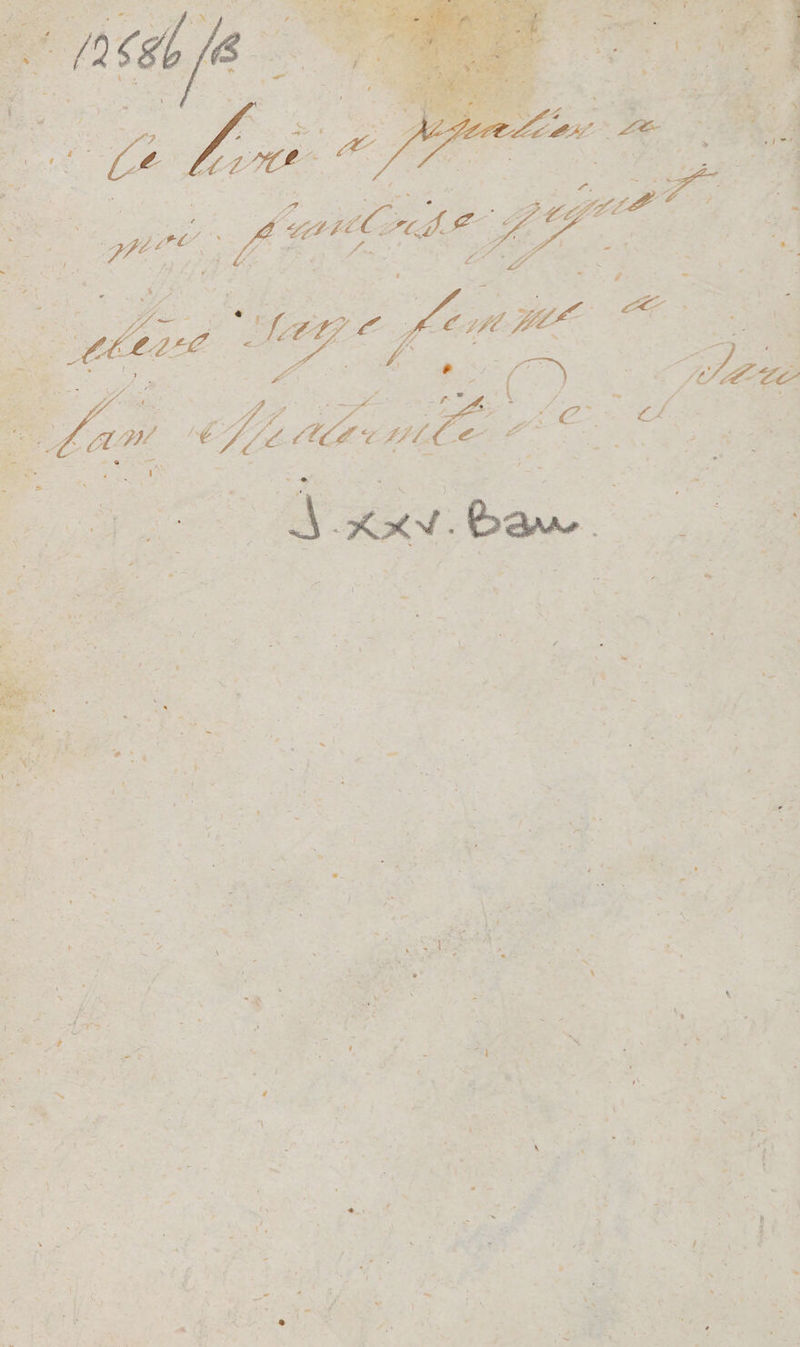 12586/B
Ce livre a ppatien a
moi francoise giguet
eleve sage femme a
lam Maternité de Pari
J.xxv. Bau